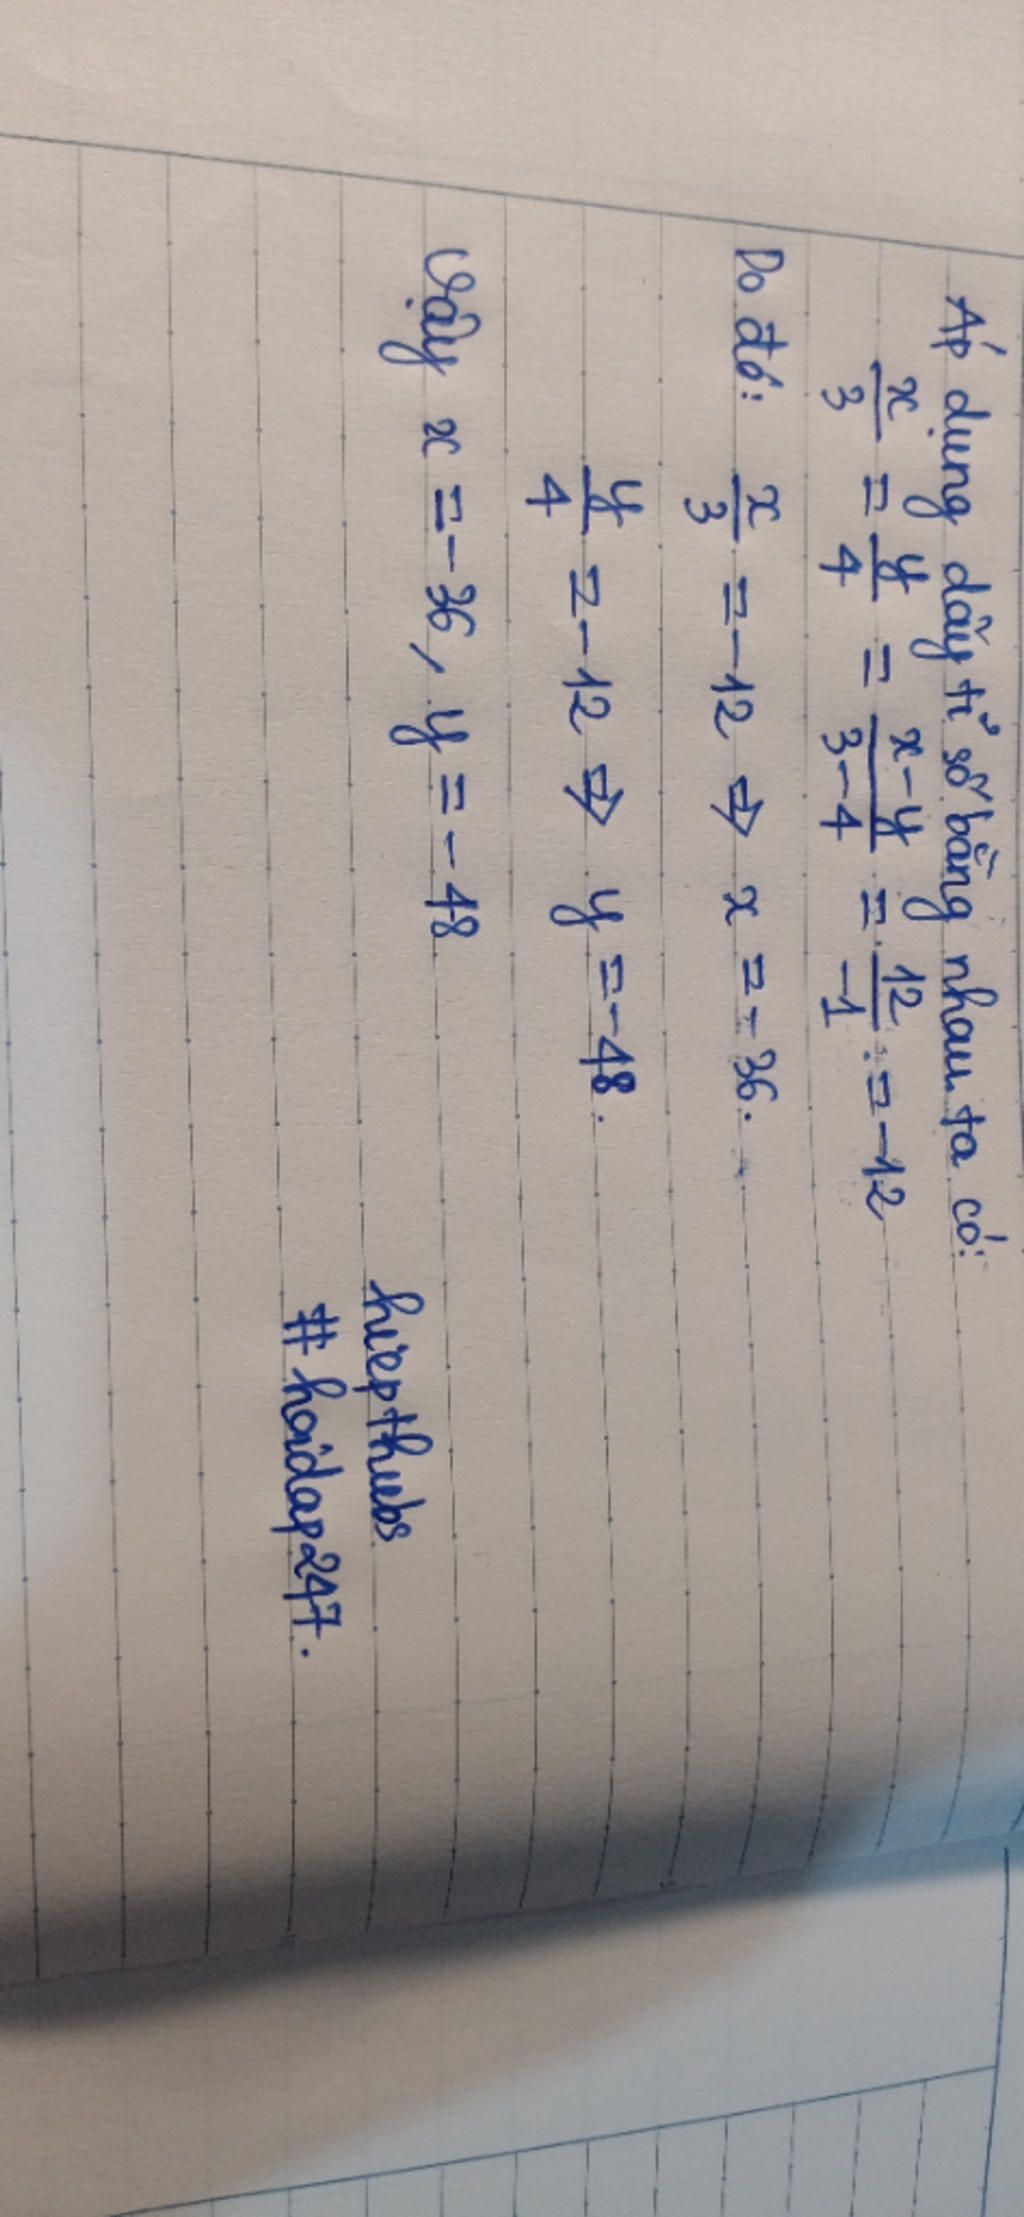 Áp dụng dãy tỉ số bằng nhau ta có:
x/3 = y/4 = x-y/3-4 = 12/-1 = -12
Do đó: x/3 = -12 => x = -36.
y/4 = -12 => y = -48.
Vậy x = -36, y = -48
hiepthubs
#hoidap247.